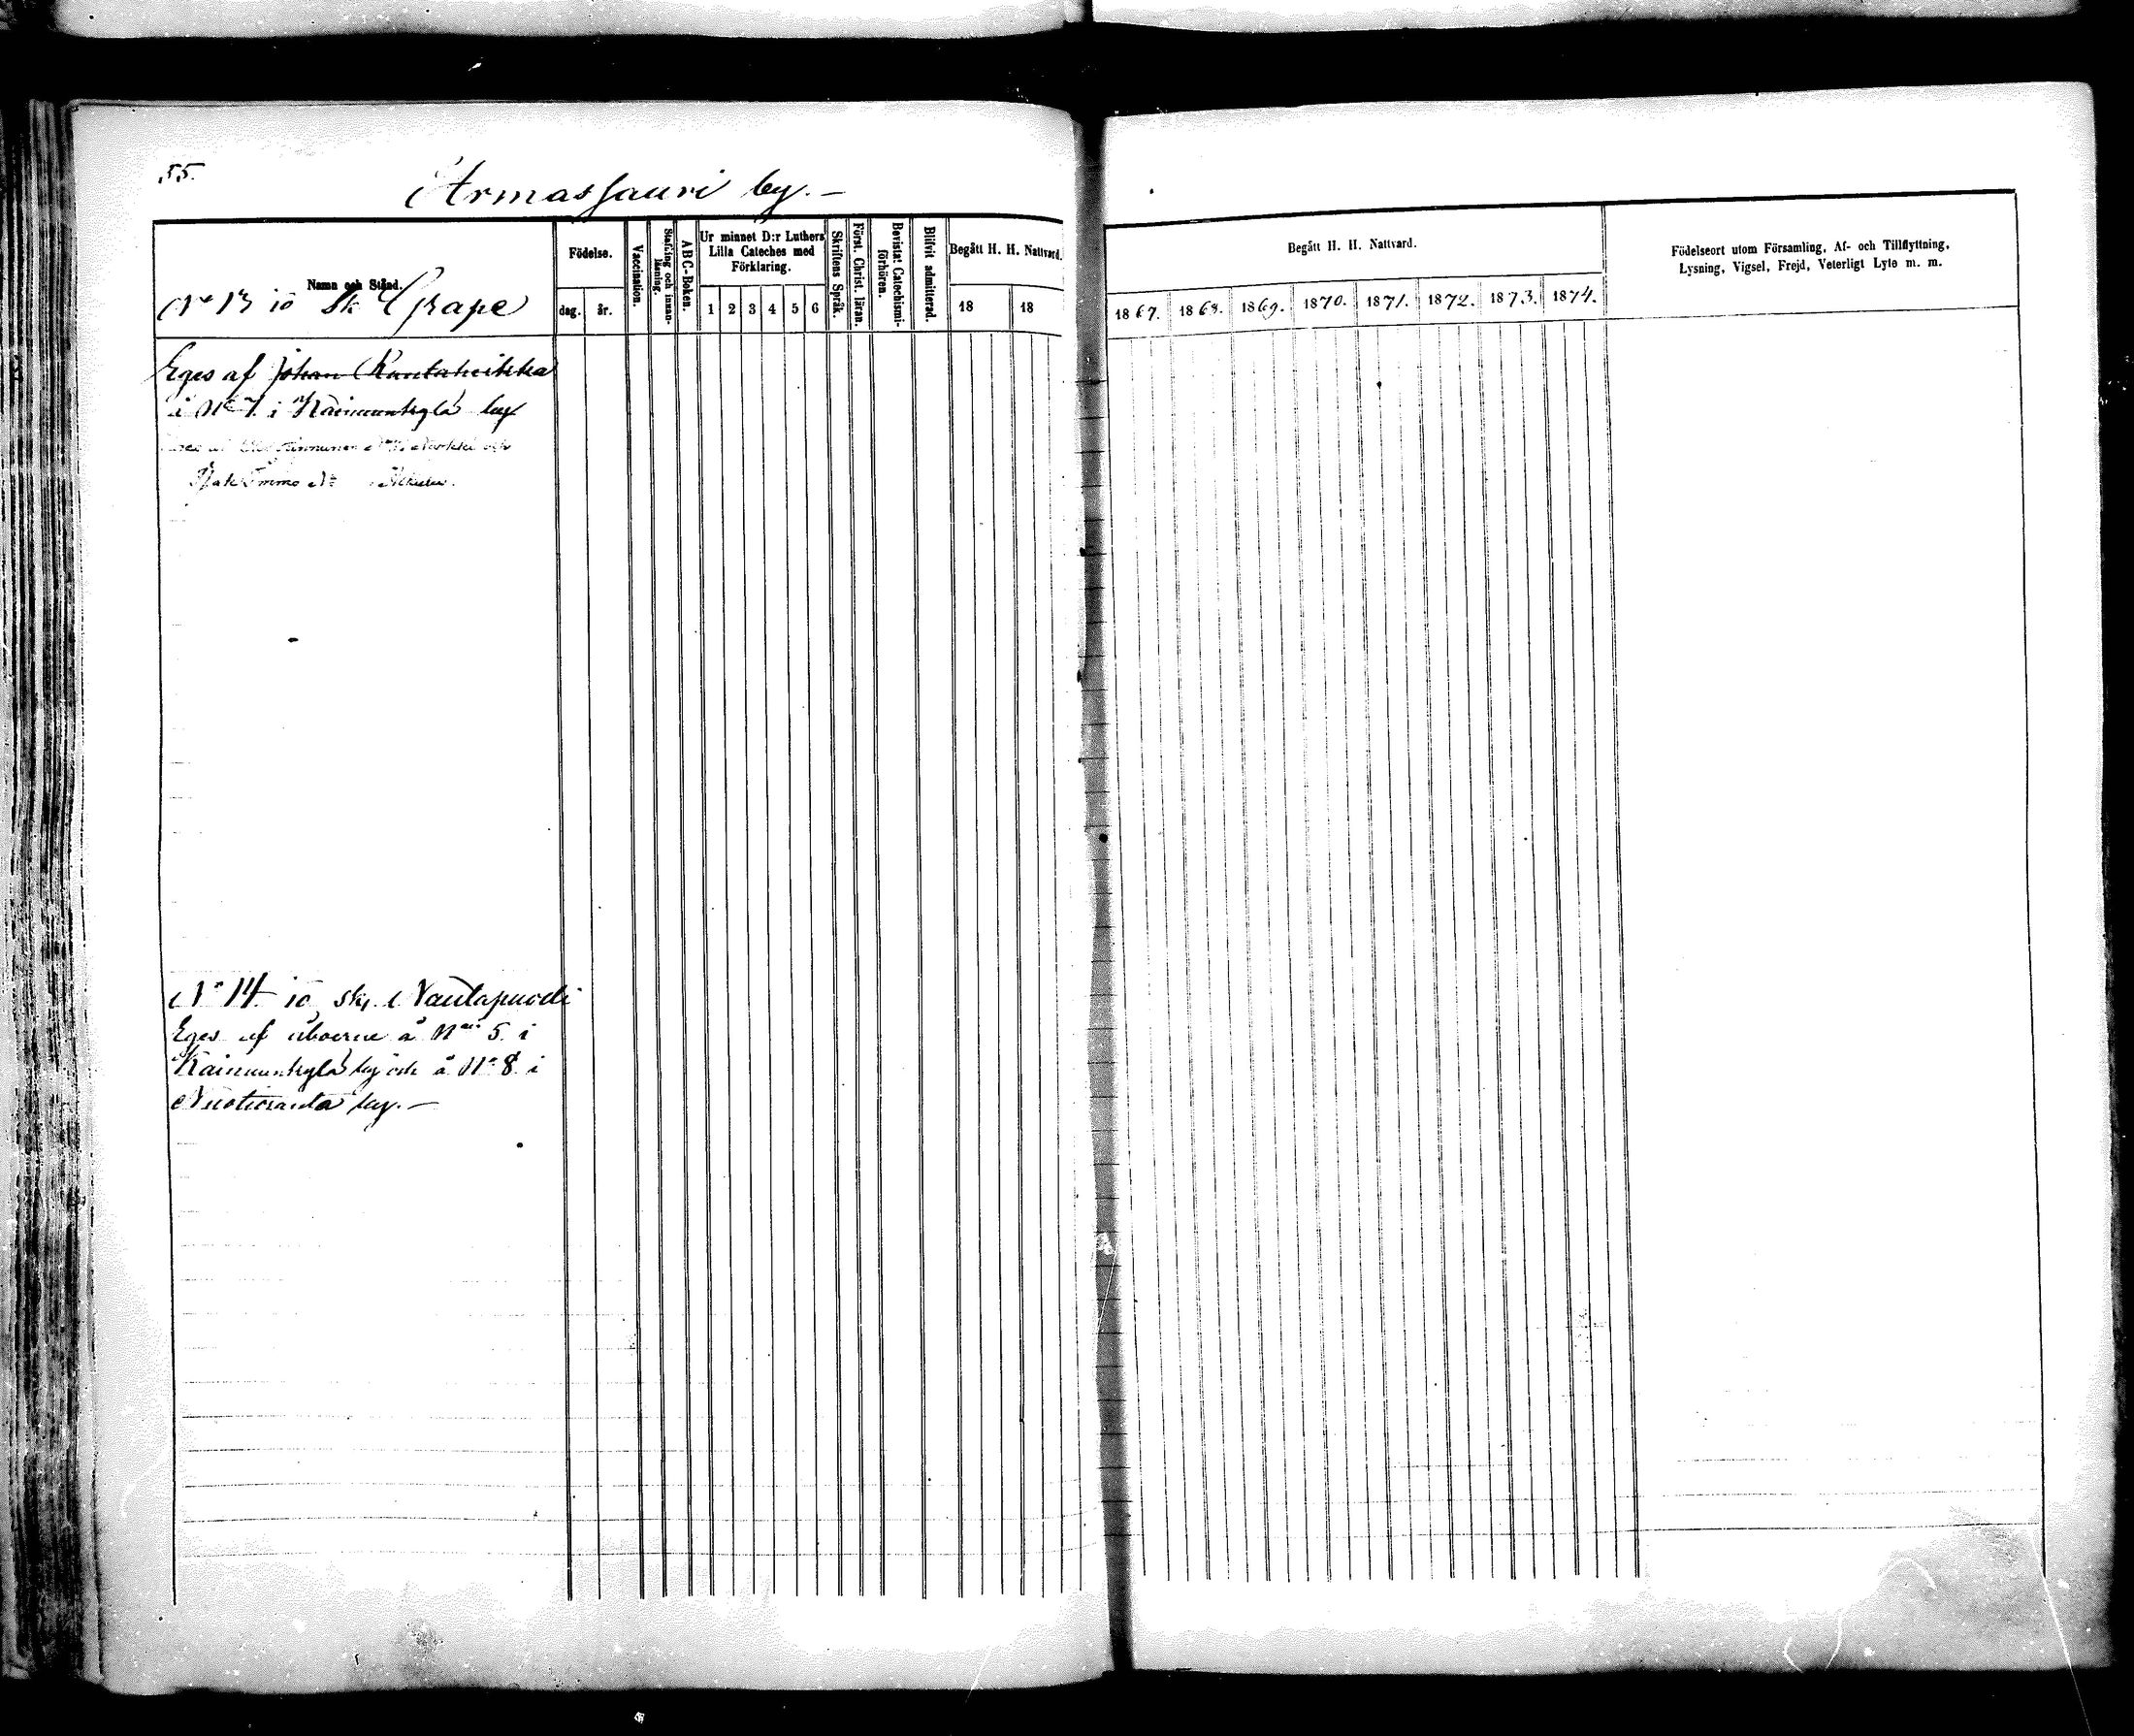 55.
Armassauri by. —
Namn och Stånd.
Födelse.
dag.
år.
Vaccination.
Stafning och innan-
läsning.
ABC-Boken.
Ur minnet D:r Luthers
Lilla Cateches med
Förklaring.
1 2 3 4 5 6
Skriftens Språk.
Först. Christ. läran.
Bevistat Catechismi-
förhören.
Blifvit admitterad.
Begått H. H. Nattvard.
18
18
Begått H. H. Nattvard.
1867. 1868. 1869. 1870. 1871. 1872. 1873. 1874.
Födelseort utom Församling, Af- och Tillflyttning,
Lysning, Vigsel, Frejd, Veterligt Lyte m. m.
No 13 io Sk Grape
Eges af Johan Rantaheikka
å No 7 i Kainuunkylä by
No 14 io Sk. Nautapuodi
Eges af åboerne å No 5. i
Kainuunkylä by och å No 8 i
Nuotioranta by. —